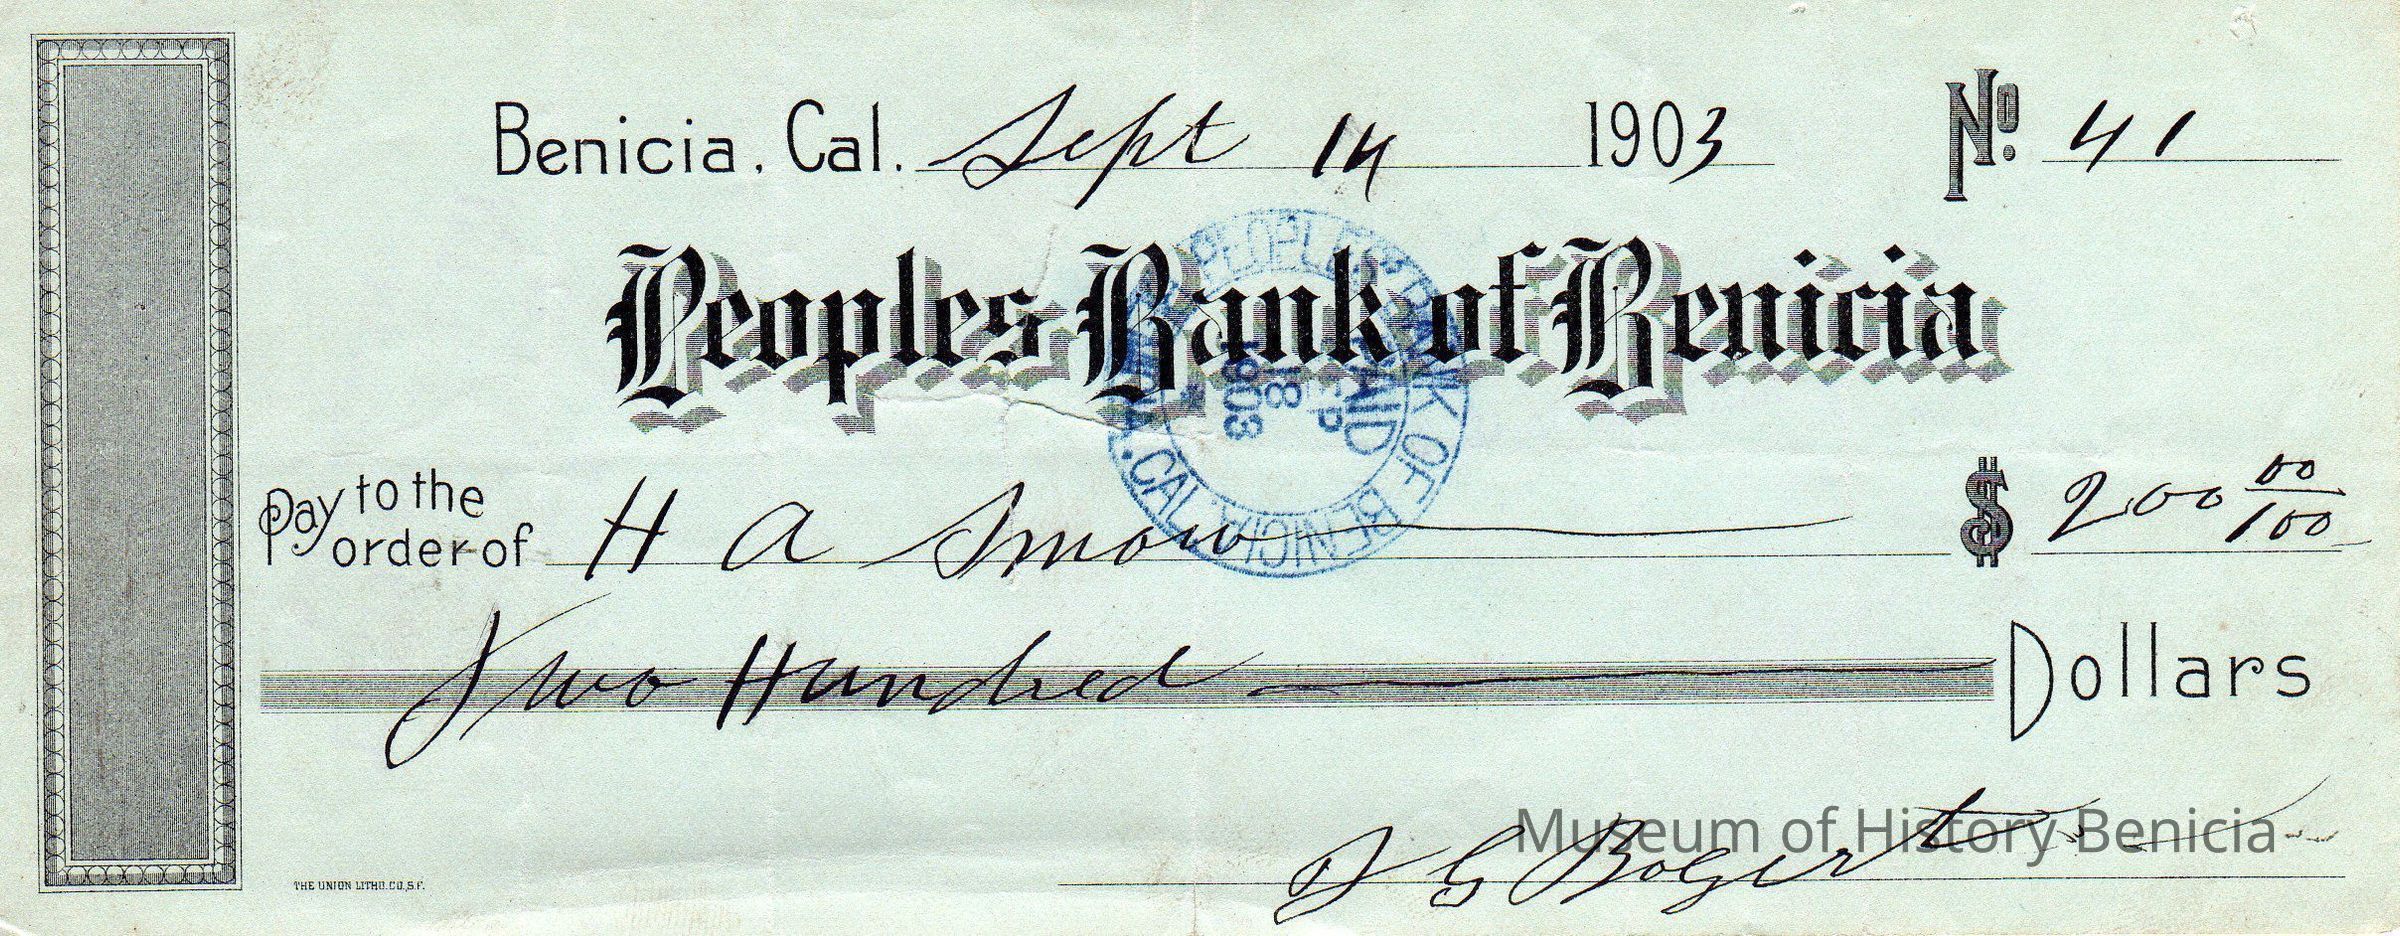 Benicia, Cal. Sept 14 1903 No. 41
Peoples Bank of Benicia
PEOPLES BANK OF BENICIA
BENICIA, CAL.
PAID
SEP
18
1903
Pay to the order of H A Snow $ 200 00/100
Two Hundred Dollars
Museum of History Benicia
G Bogert
THE UNION LITHO. CO., S.F.